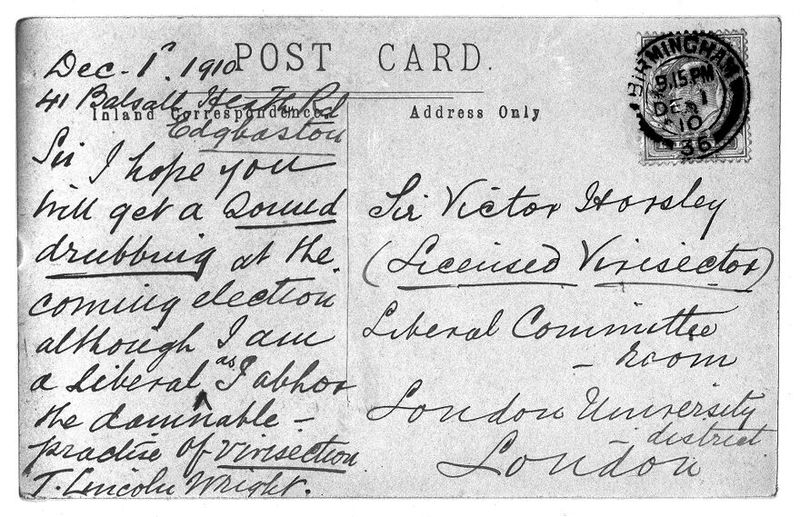 POST CARD.
Inland Correspondence
Address Only
Dec - 1st. 1910
41 Balsall Heath Rd
Edgbaston
Sir I hope you
will get a sound
drubbing at the
coming election
although I am
a Liberal as I abhor
the damnable -
practise of Vivisection
T. Lincoln Wright.
BIRMINGHAM
9.15 PM
DE 1
10
36
Sir Victor Horsley
(Licensed Vivisector)
Liberal Committee
- room
London University
- district
London